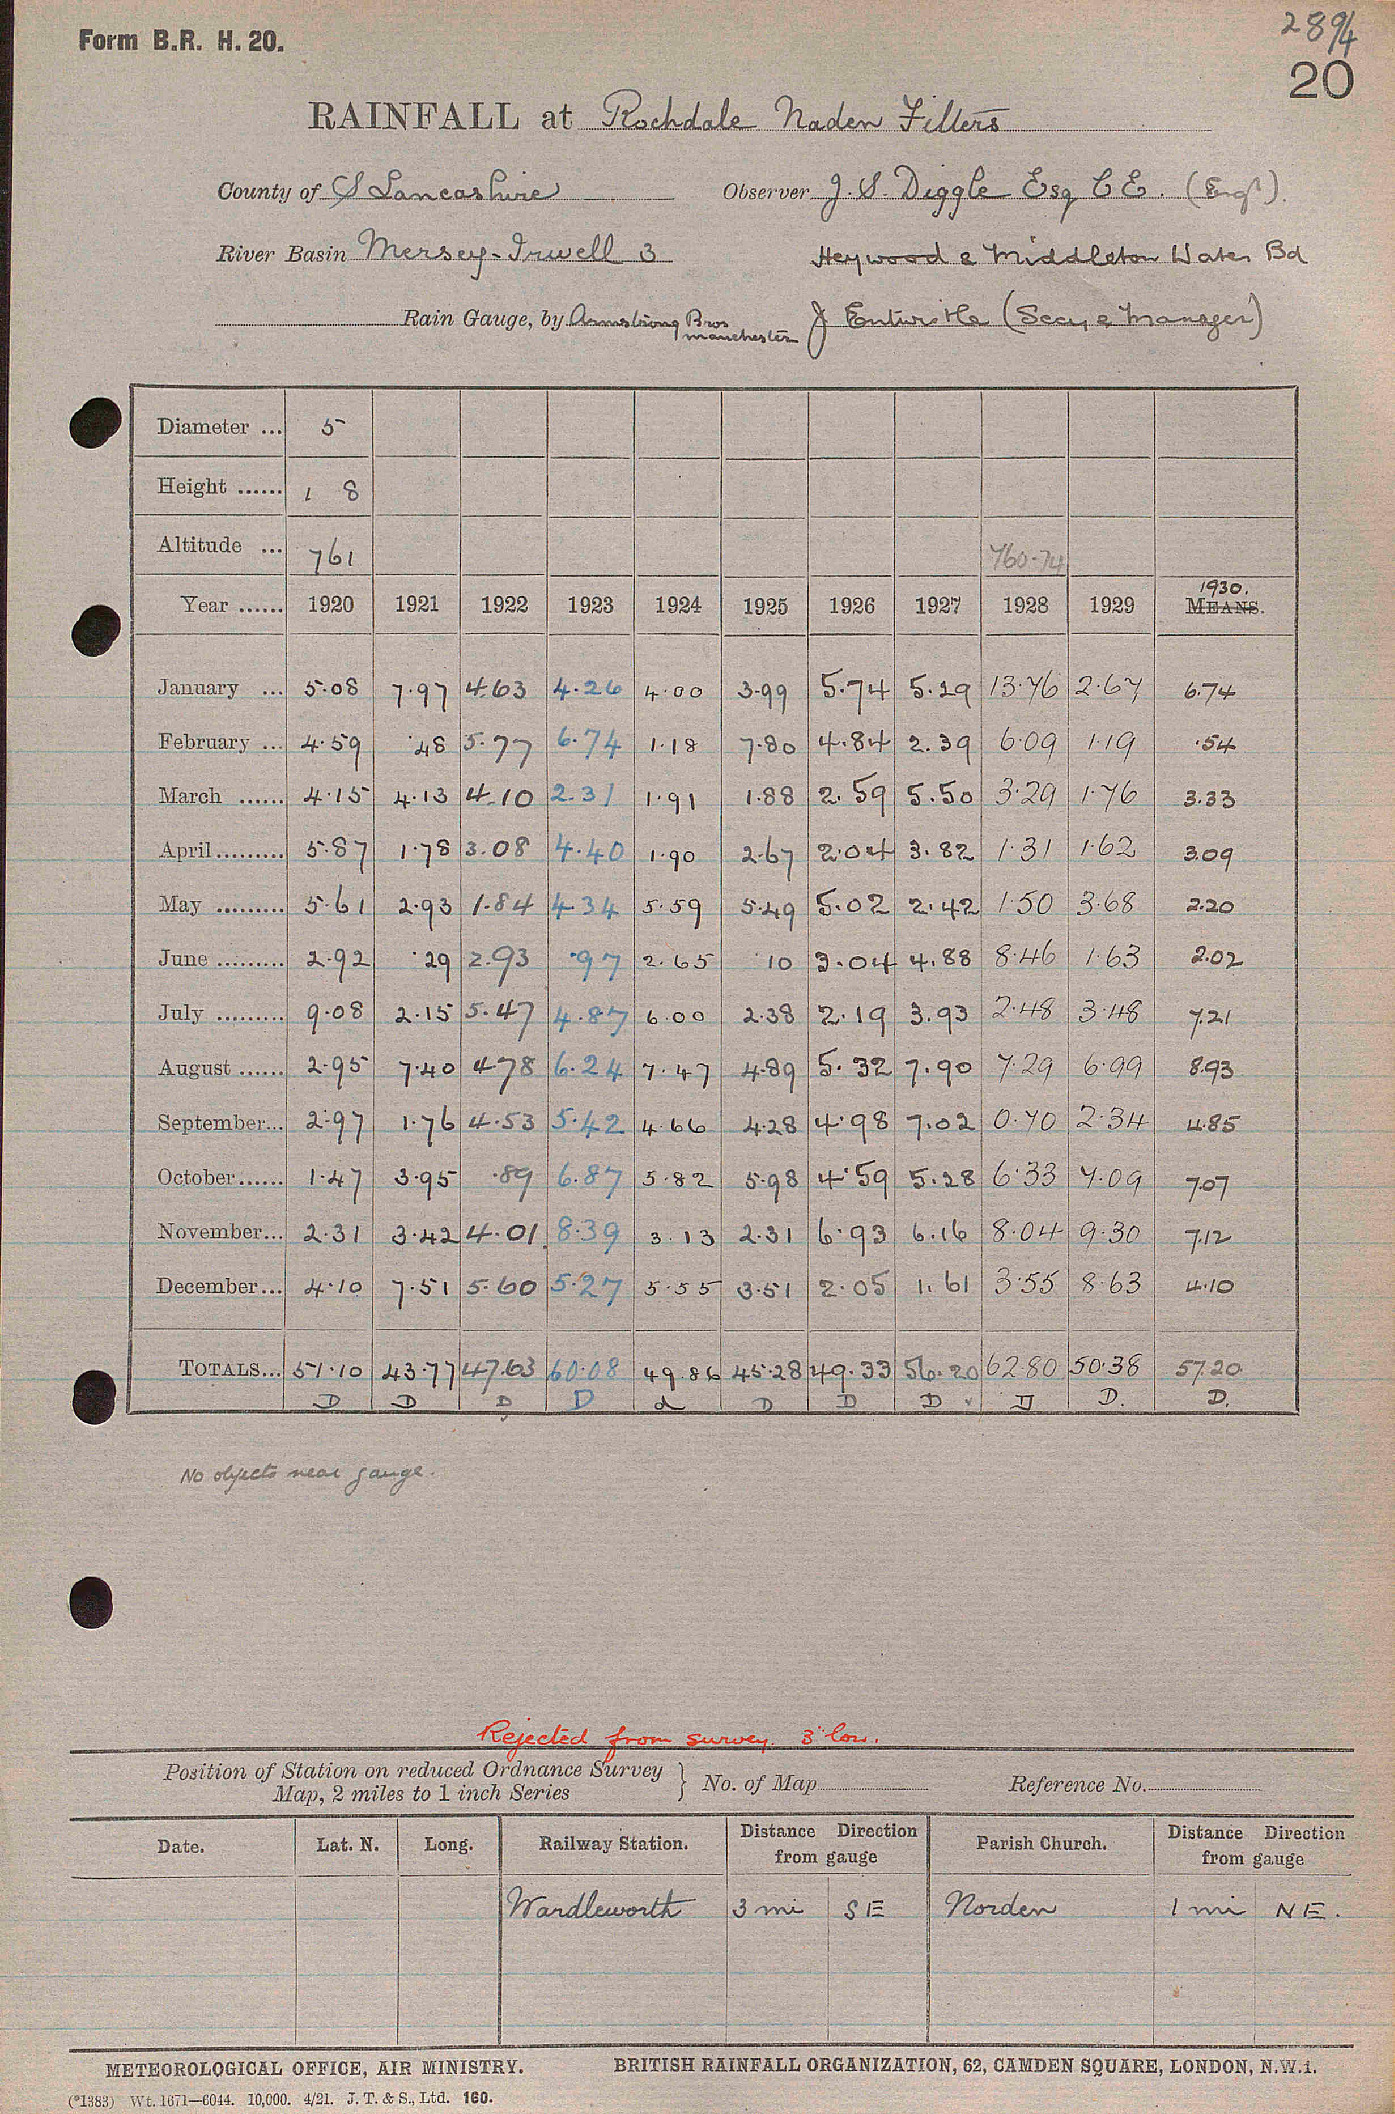 Form B.R. H. 20.
289/4
20
RAINFALL at Rochdale Naden Filters
County of S Lancashire Observer J. S. Diggle Esq C E. (Engr).
River Basin Mersey-Irwell 3 Heywood & Middleton Water Bd
Rain Gauge, by Armstrong Bros Manchester J Entwistle (Secy & Manager)
Diameter ... 5
Height ...... 1 8
Altitude ... 761 760.74
Year ...... 1920 1921 1922 1923 1924 1925 1926 1927 1928 1929 1930. MEANS.
January ... 5.08 7.97 4.63 4.26 4.00 3.99 5.74 5.29 13.76 2.67 6.74
February ... 4.59 .48 5.77 6.74 1.18 7.80 4.84 2.39 6.09 1.19 .54
March ...... 4.15 4.13 4.10 2.31 1.91 1.88 2.59 5.50 3.29 1.76 3.33
April......... 5.87 1.78 3.08 4.40 1.90 2.67 2.04 3.82 1.31 1.62 3.09
May ......... 5.61 2.93 1.84 4.34 5.59 5.49 5.02 2.42 1.50 3.68 2.20
June ......... 2.92 .29 2.93 .97 2.65 .10 3.04 4.88 8.46 1.63 2.02
July ......... 9.08 2.15 5.47 4.87 6.00 2.38 2.19 3.93 2.48 3.48 7.21
August ...... 2.95 7.40 4.78 6.24 7.47 4.89 5.32 7.90 7.29 6.99 8.93
September... 2.97 1.76 4.53 5.42 4.66 4.28 4.98 7.02 0.70 2.34 4.85
October...... 1.47 3.95 .89 6.87 5.82 5.98 4.59 5.28 6.33 7.09 7.07
November... 2.31 3.42 4.01 8.39 3.13 2.31 6.93 6.16 8.04 9.30 7.12
December... 4.10 7.51 5.60 5.27 5.55 3.51 2.05 1.61 3.55 8.63 4.10
TOTALS... 51.10 43.77 47.63 60.08 49.86 45.28 49.33 56.20 62.80 50.38 57.20
D D D D d D D D D D. D.
No objects near gauge.
Rejected from survey. 3" low.
Position of Station on reduced Ordnance Survey Map, 2 miles to 1 inch Series } No. of Map Reference No.
Date. Lat. N. Long. Railway Station. Distance Direction from gauge Parish Church. Distance Direction from gauge
Wardleworth 3 mi SE Norden 1 mi NE.
METEOROLOGICAL OFFICE, AIR MINISTRY. BRITISH RAINFALL ORGANIZATION, 62, CAMDEN SQUARE, LONDON, N.W.1.
(*1383) Wt. 1671—6044. 10,000. 4/21. J. T. & S., Ltd. 160.